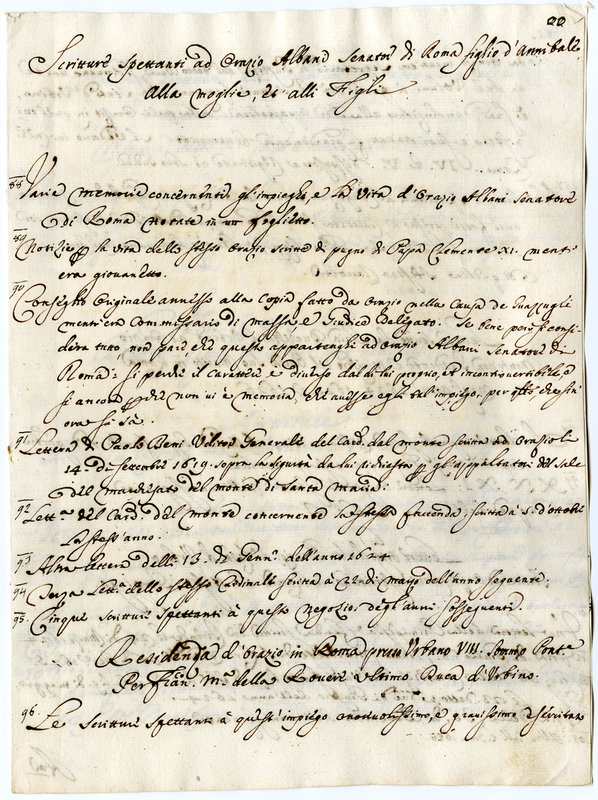 22
Scritture spettanti ad Orazio Albani Senator di Roma figlio d'Annibale,
alla moglie, et alli Figli
88 Varie memorie concernenti gl'impieghi, e la vita d'Orazio Albani Senatore
di Roma notate in un foglietto.
89 Notizie p la vita dello stesso Orazio scritte di pugno di Papa Clemente XI. menti
era giovanetto.
90 Consegito Originale annesso alla Copia fatto da Orazio nella Causa de
mentr'era Commissario di Massa, e Giudice Delegato. Se bene poi si consi
dera tutto, non pare che questo appartenghi ad Orazio Albani Senatore di
Roma: si perche il Carattere è diverso dal di lui proprio, et incontrovertibile
si ancora perche non vi è memoria, che avesse egli tal'impiego, per qto che sin
ora si sà.
91 Lettera di Paolo Beni Uditor Generale del Card. dal Monte scritta ad Orazio li
14 di Settembre 1619. sopra la sigurtà da lui richiesta p gl'appaltatori del Sale
del Marchesato del Monte di Santa Maria:
92 Lett.a del Card. del Monte concernente la stessa facenda, scritta à 5. d'ottobre
lo stess'anno.
93 Altra lettera delli 13. di Genn.o dell'anno 1624
94 Terza Lett.a dello stesso Cardinale scritta à 22. di Marzo dell'anno seguente.
95. Cinque scritture spettanti à questo negozio, degl'anni sosseguenti.
Residenza d'Orazio in Roma presso Urbano VIII. Sommo Pont.e
Per Fran. M.a della Rovere ultimo Duca d'Urbino.
96. Le scritture spettanti à quest'impiego onorevolissimo, e gravissimo esercitato